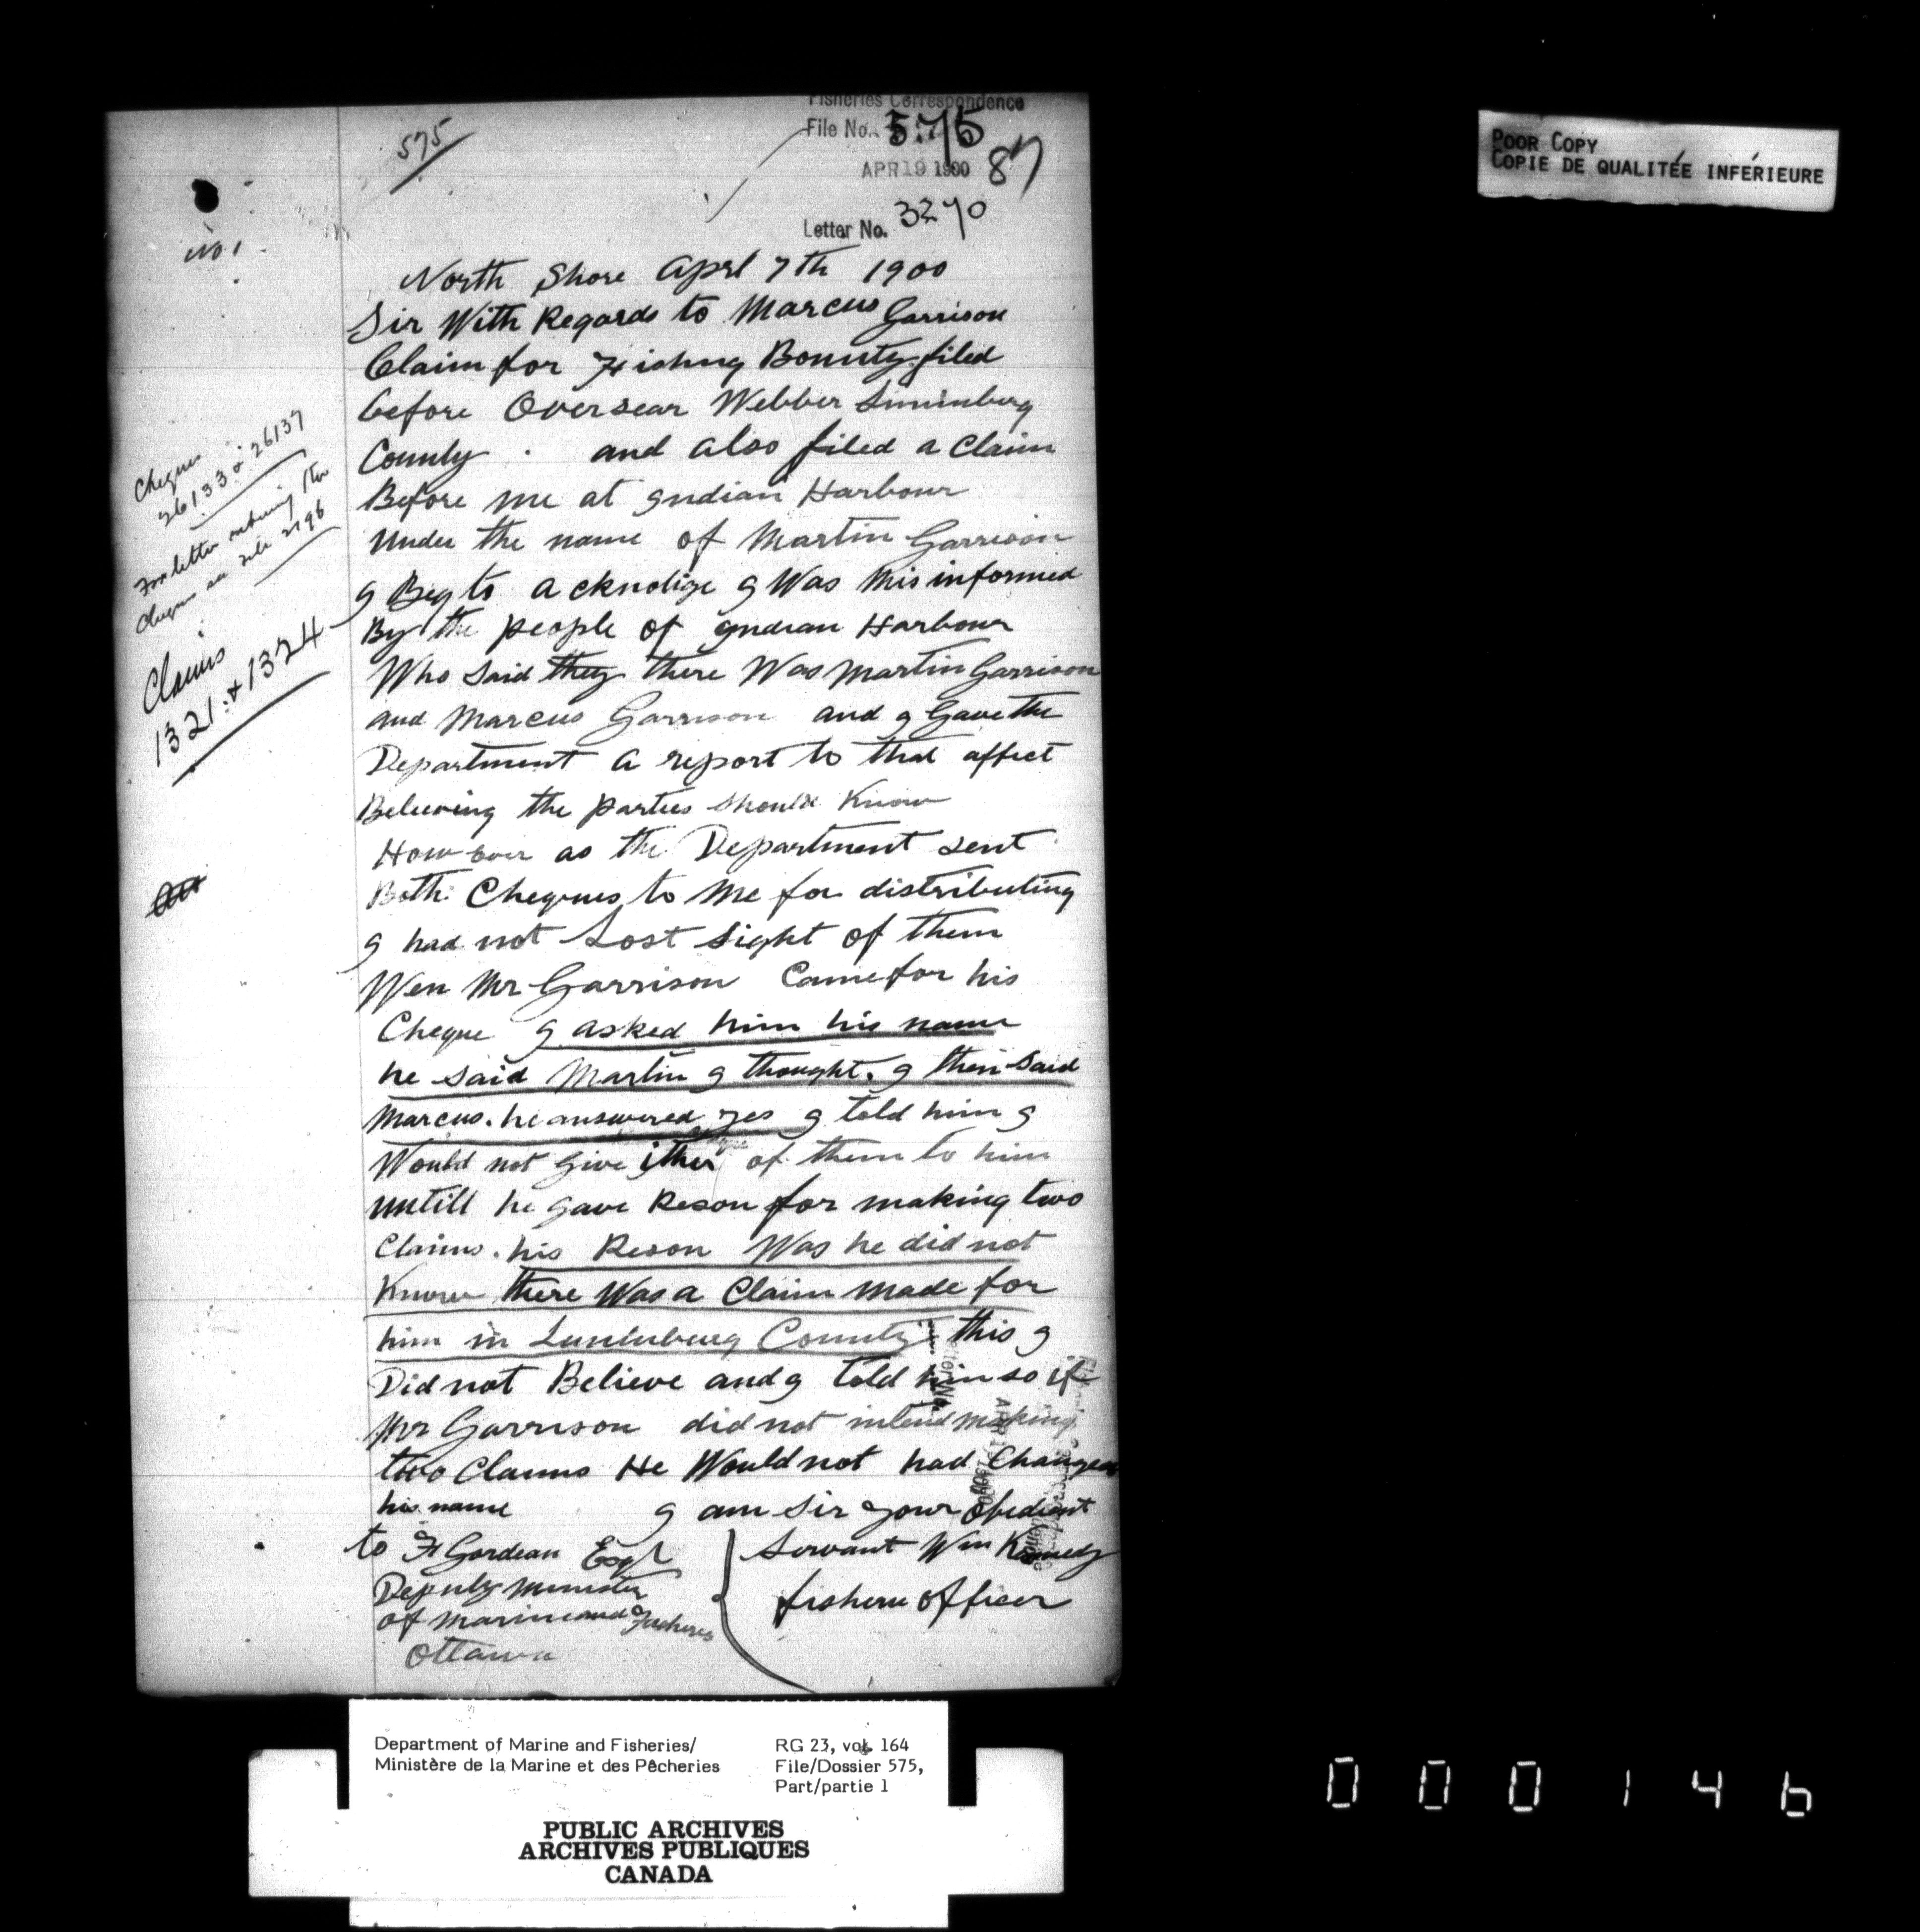 Fisheries Correspondence
File No. 575
APR 19 1900 87
Letter No. 3270
575
No 1
North Shore Aprl 7th 1900
Sir With Regards to Marcus Garrison
Claim for Fishing Bounty filed
before Oversear Webber Luninburg
County . and also filed a Claim
Before me at Indian Harbour
under the name of Martin Garrison
I Beg to acknolige I Was Misinformed
By the people of Indian Harbour
Who Said they there Was Martin Garrison
and Marcus Garrison and I Gave the
Department a report to that affect
Believing the parties should Know
How ever as the Department sent
Both Cheques to Me for distributing
I had not Lost Sight of them
Wen Mr Garrison Came for his
Cheque I asked him his name
he said Martin I thought. I then Said
Marcus. he answered yes I told him I
Would not give ither of them to him
untill he gave Reson for making two
Claims. his Reson Was he did not
Know there Was a Claim made for
him in Luninburg County this I
Did not Believe and I told him so if
Mr Garrison did not intend making
two Claims He Would not had Changed
his name I am Sir your Obedient
Servant Wm Kennedy
fishere officer
to F Gordean Esqr
Deputy Minister
of Marine and Fisheries
Ottawa
Cheques
26133 & 26137
For letter returning the
Cheques see file 2196
Claims
1321 & 1324
Letter No.
APR 19 1900
Fisheries Correspondence
POOR COPY
COPIE DE QUALITÉE INFÉRIEURE
Department of Marine and Fisheries/
Ministère de la Marine et des Pêcheries
RG 23, vol. 164
File/Dossier 575,
Part/partie 1
PUBLIC ARCHIVES
ARCHIVES PUBLIQUES
CANADA
000146